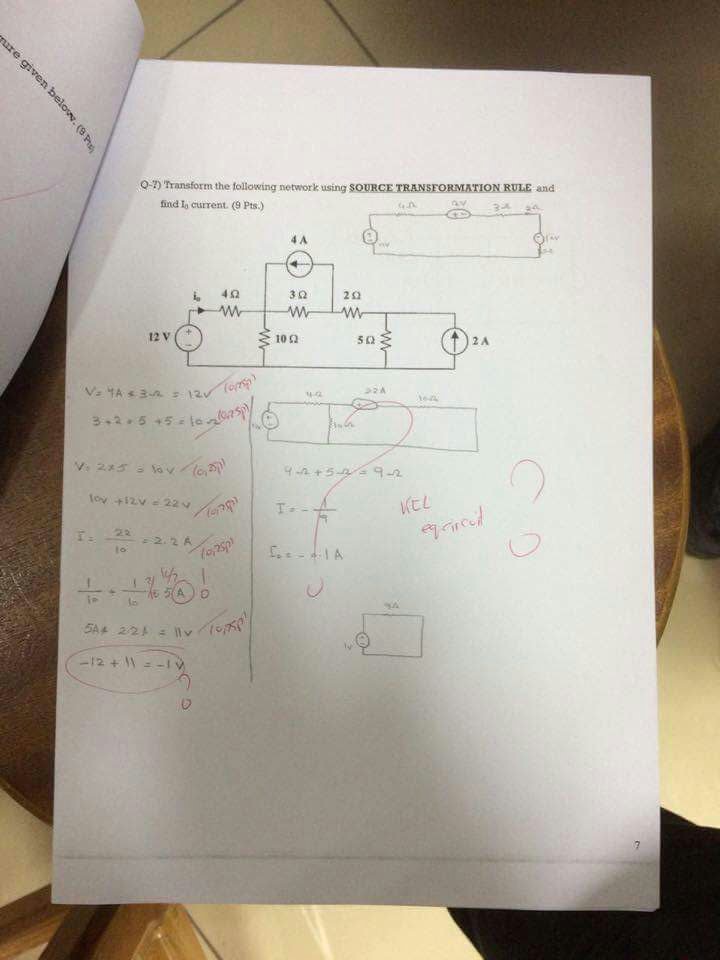 ure given below. (8 Pts)
Q-7) Transform the following network using SOURCE TRANSFORMATION RULE and
find I₀ current. (9 Pts.)
4Ω 3Ω 2Ω
4 A
i₀ 4 Ω 3 Ω 2 Ω
12 V 10 Ω 5 Ω 2 A
V= 4A * 3Ω = 12V (0,75p)
3+2=5 +5=10Ω (0,75p)
V= 2x5 = 10V (0,75p)
10V +12V = 22V (0,75p)
I = 22/10 = 2.2 A (0,75p)
1/10 + 1/10 5 A
5A* 2.2A = 11V (0,75p)
-12 + 11 = -1V
4Ω 22A 10Ω
10Ω
4Ω + 5Ω = 9Ω
I = - 1/9
I₀ = -0.1A
eq circuit
9Ω
1V
7